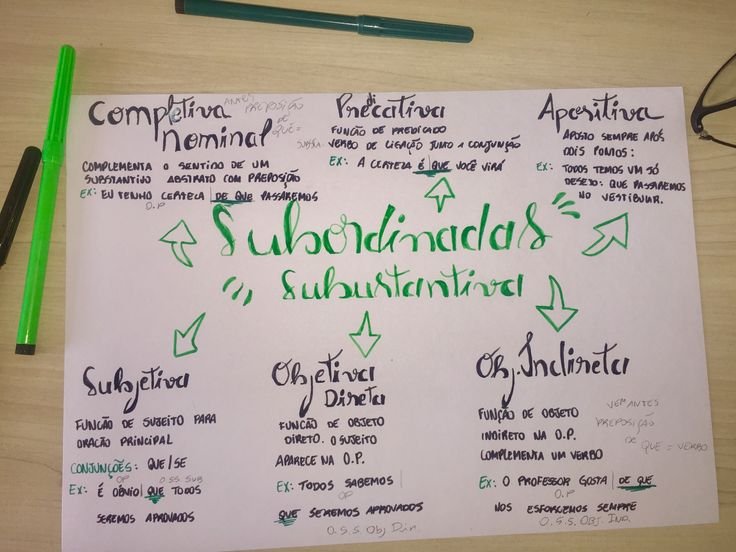 Completiva
Nominal
ANTES PREPOSIÇÃO
DE
QUE =
COMPLEMENTA O SENTIDO DE UM
SUBSTANTIVO ABSTRATO COM PREPOSIÇÃO
EX: EU TENHO CERTEZA | DE QUE PASSAREMOS
O.P
Predicativa
FUNÇÃO DE PREDICADO
VERBO DE LIGAÇÃO JUNTO A CONJUNÇÃO
EX: A CERTEZA É | QUE VOCÊ VIRÁ
Apositiva
APOSTO SEMPRE APÓS
DOIS PONTOS:
EX: TODOS TEMOS UM SÓ
DESEJO: QUE PASSAREMOS
NO VESTIBULAR.
Subordinadas
Subustantiva
Subjetiva
FUNCÃO DE SUJEITO PARA
ORACÃO PRINCIPAL
CONJUNÇÕES: QUE/SE
OP O.S.S. SUB
EX: É OBVIO | QUE TODOS
SEREMOS APROVADOS
Objetiva
Direta
FUNCÃO DE OBJETO
DIRETO. O SUJEITO
APARECE NA O.P.
EX: TODOS SABEMOS |
OP
QUE SEREMOS APROVADOS
O.S.S Obj Dir.
Obj. Indireta
FUNÇÃO DE OBJETO
INDIRETO NA O.P.
COMPLEMENTA UM VERBO
VEM ANTES
PREPOSIÇÃO
DE QUE = VERBO
EX: O PROFESSOR GOSTA | DE QUE
O.P
NOS ESFORCEMOS SEMPRE
O.S.S. OBJ. IND.